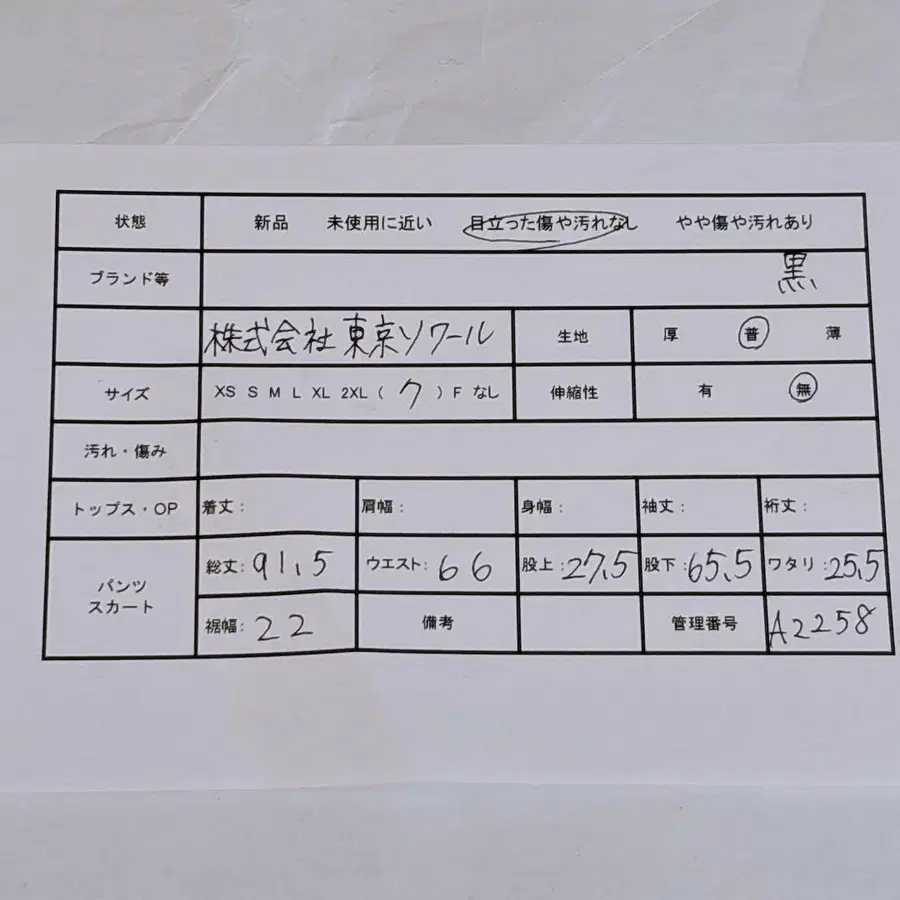 状態 新品 未使用に近い 目立った傷や汚れなし やや傷や汚れあり
ブランド等 黒
株式会社東京ソワール 生地 厚 普 薄
サイズ XS S M L XL 2XL ( 7 ) F なし 伸縮性 有 無
汚れ・傷み
トップス・OP 着丈: 肩幅: 身幅: 袖丈: 裄丈:
パンツ スカート 総丈: 91.5 ウエスト: 66 股上: 27.5 股下: 65.5 ワタリ: 25.5
裾幅: 22 備考 管理番号 A2258